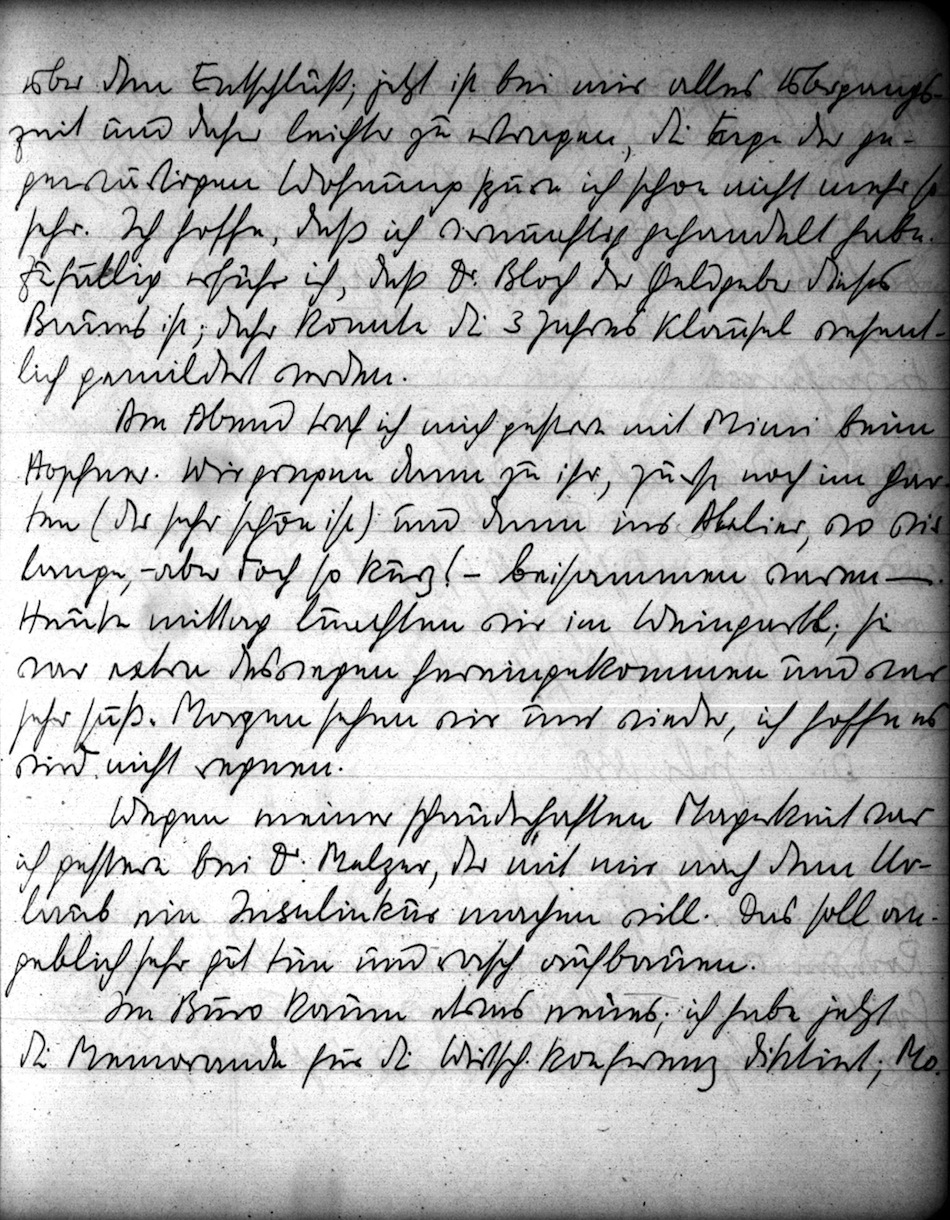 über den Entschluß; jetzt ist bei mir alles Übergangs-
zeit und daher leichter zu ertragen, die Enge der ge-
genwärtigen Wohnung spüre ich schon nicht mehr so
sehr. Ich hoffe, daß ich vernünftig gehandelt habe.
Zufällig erfuhr ich, daß Dr. Bloch der Geldgeber dieses
Baues ist; daher konnte die 3 Jahres Klausel wesent-
lich gemildert werden.
Am Abend traf ich mich gestern mit Mimi beim
Hopfner. Wir gingen dann zu ihr, zuerst noch im Gar-
ten (der sehr schön ist) und dann ins Atelier, wo wir
lange, - aber doch so kurz! - beisammen waren —
Heute mittag lunchten wir im Weingartl; sie
war extra deswegen hereingekommen und war
sehr süß. Morgen sehen wir uns wieder, ich hoffe es
wird nicht regnen.
Wegen meiner schauderhaften Magerkeit war
ich gestern bei Dr. Melzer, der mit mir nach dem Ur-
laub ein Insulinkur machen will. Das soll an-
geblich sehr gut tun und rasch aufbauen.
Im Büro kaum etwas neues; ich habe jetzt
die Memoranda für die Wirtsch. Konferenz diktiert; Mo.